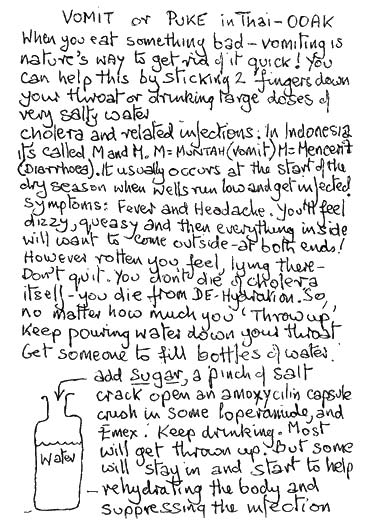 VOMIT or PUKE in Thai - OOAK
When you eat something bad - vomiting is
nature's way to get rid of it quick! You
can help this by sticking 2 fingers down
your throat or drinking large doses of
very salty water
cholera and related infections. In Indonesia
its called M and M. M = MUNTAH (vomit) M = Mencerit
(Diarrhoea). It usually occurs at the start of the
dry season when wells run low and get infected
Symptoms: Fever and Headache. You'll feel
dizzy, queasy and then everything inside
will want to come outside - at both ends!
However rotten you feel, lying there -
Don't quit. You don't die of cholera
itself - you die from DE-Hydration. So,
no matter how much you 'Throw up'
Keep pouring water down your throat
Get someone to fill bottles of water.
add Sugar, a pinch of salt
crack open an amoxycilin capsule
crush in some loperamide, and
Emex. Keep drinking. Most
will get thrown up. But some
will stay in and start to help
- rehydrating the body and
suppressing the infection
Water